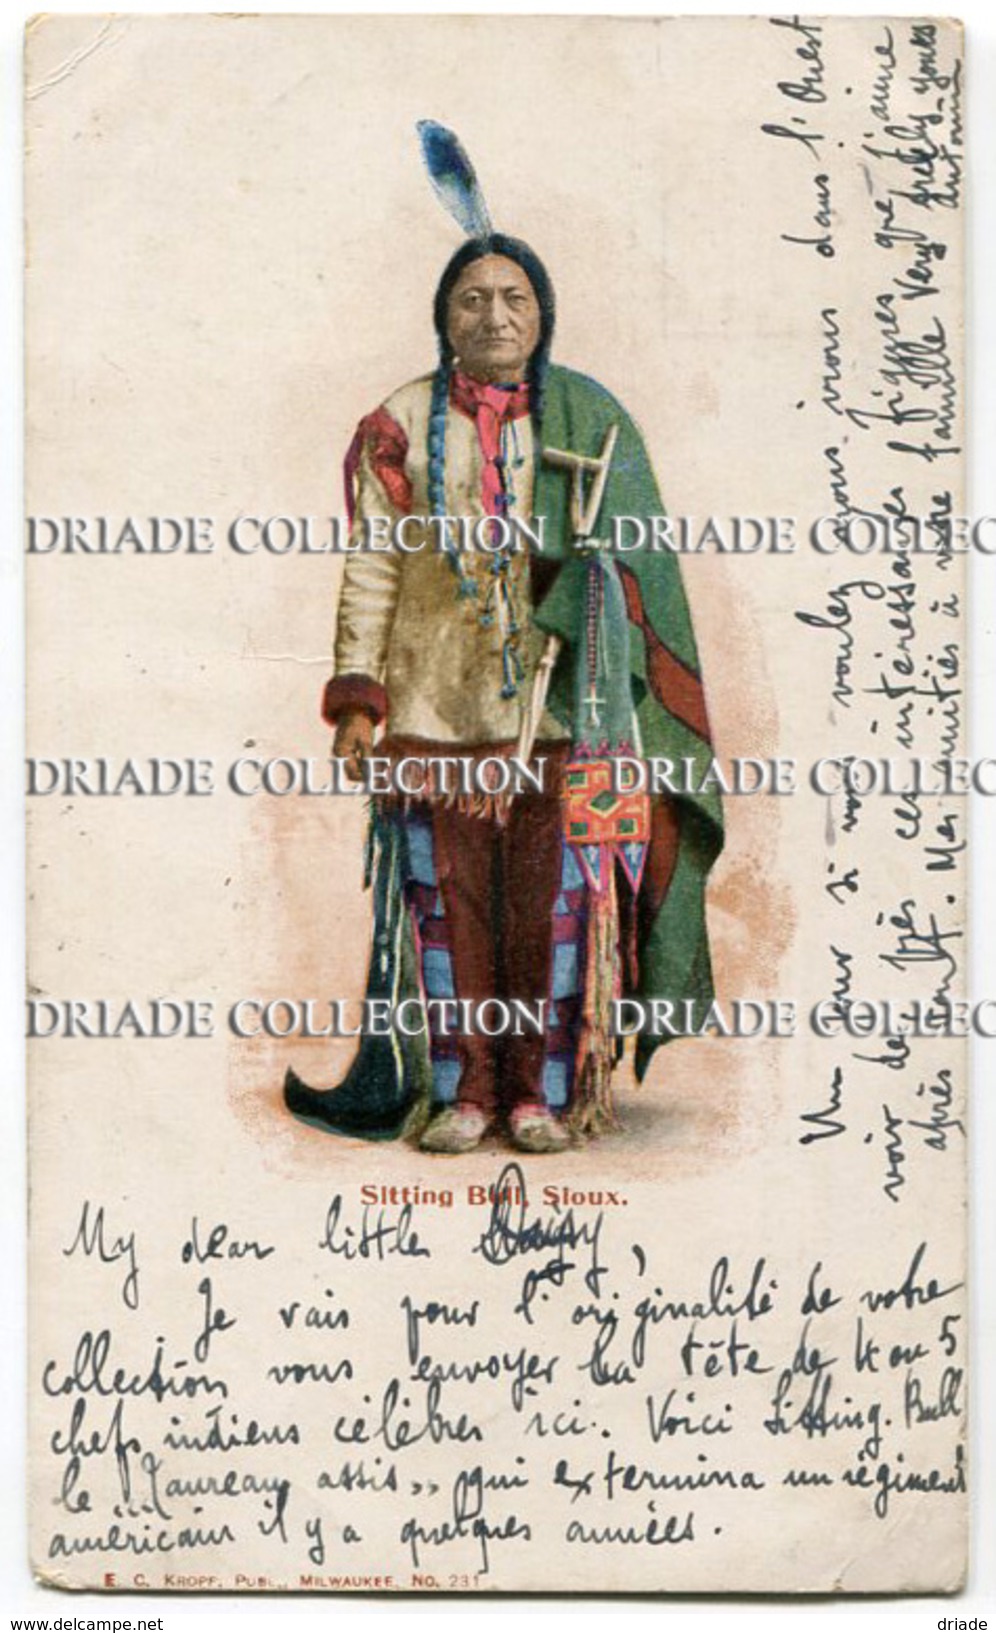 DRIADE COLLECTION DRIADE C
DRIADE COLLECTION DRIADE C
DRIADE COLLECTION DRIADE C
Sitting Bull, Sioux.
My dear little Daisy,
Je vais pour l'originalité de votre
collection vous envoyer la tête de 4 ou 5
chefs indiens célèbres ici. Voici Sitting. Bull
le "Taureau assis,, qui extermina un régiment
américain il y a quelques années.
Un jour si vous voulez nous irons dans l'Ouest
voir de près ces intéressantes figures que j'aime
après tout. Mes amitiés à votre famille Very yours
Antoine
E. C. KROPF, PUBL., MILWAUKEE. NO. 231
www.delcampe.net
driade